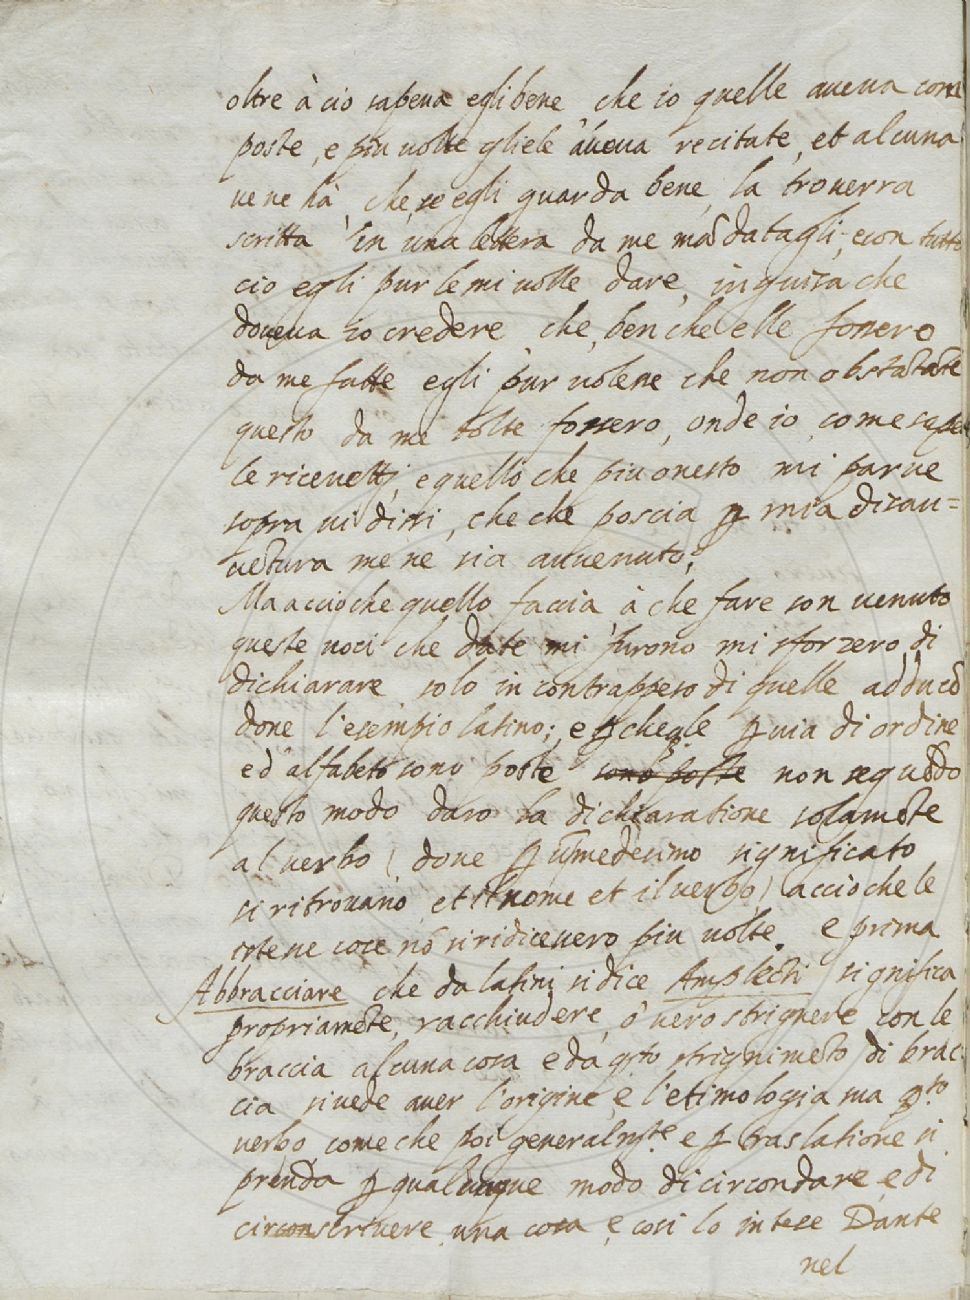 oltre à cio sapeua egli bene che io quelle aueua com
poste, e piu uolte gliele aueua recitate, et alcuna
ue ne hà, che, se egli guarda bene, la trouerra
scritta in una lettera da me mãdatagli, e con tutto
cio egli pur le mi uolle dare, in guisa che
doueua io credere, che, ben che elle fossero
da me fatte egli pur uolesse che non obstãtãte
questo da me tolte fossero, onde io, come
le riceuetti, e quello che piu onesto mi parue
sopra ui dissi, che che poscia ꝑ mia disau=
uẽtura me ne sia auuenuto;
Ma accioche quello faccia à che fare son uenuto
queste uoci che date mi furono mi sforzero di
dichiarare solo in contrappeso di quelle adducẽ
done l'esempio latino; e ꝑche ꝑ uia di ordine
ed alfabeto sono poste sono poste non seguẽdo
questo modo daro la dichiaratione solamẽte
al uerbo (doue ꝑ ũ medesimo significato
si ritrouano et il nome et il uerbo) accioche le
istesse cose nõ si ridicessero piu uolte. e prima
Abbracciare che da latini si dice Amplecti significa
propriamẽte, racchiudere, ó uero strignere con le
braccia alcuna cosa e da q̃sto strignimẽto di brac-
cia si uede auer l'origine, e l'etimologia ma q.sto
uerbo, come che poi generalm.te e ꝑ traslatione si
prenda ꝑ qualunque modo di circondare, e di
circonscriuere una cosa, e, cosi lo intese Dante
nel